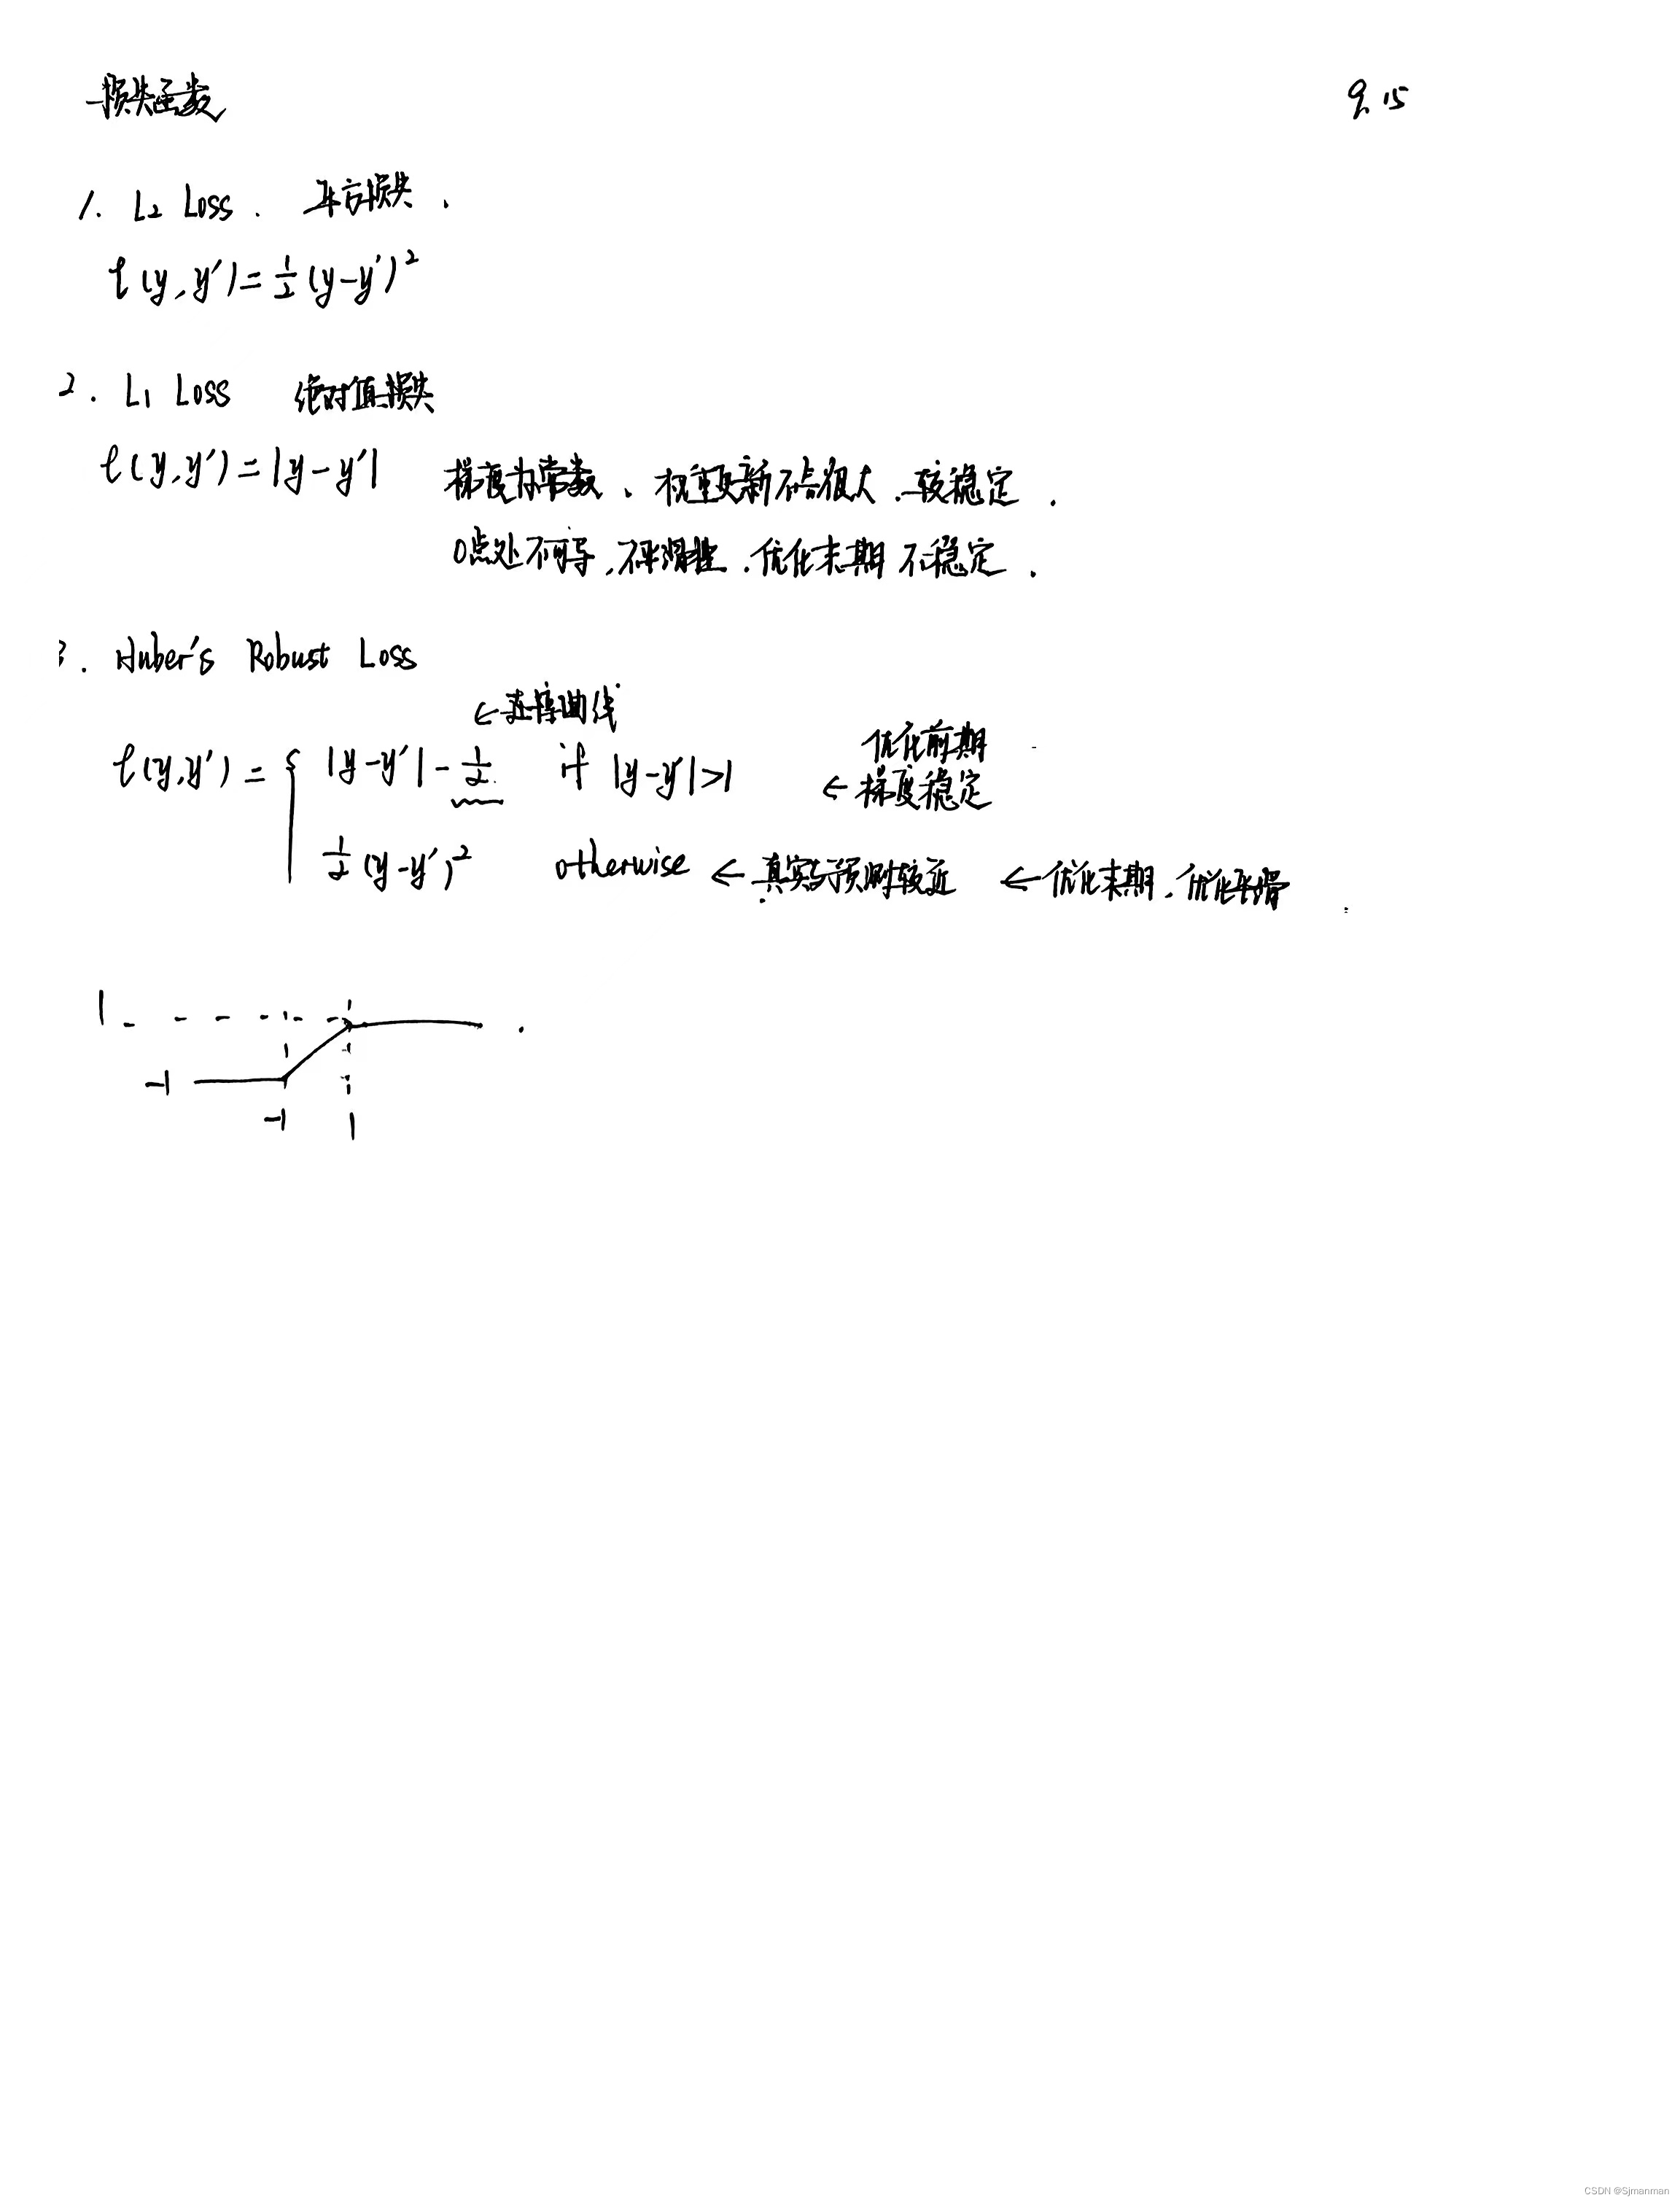 损失函数 9.15
1. L2 Loss. 平方损失.
l(y,y')=½(y-y')²
2. L1 Loss 绝对值损失
l(y,y')=|y-y'| 梯度为常数、权重更新不会很大、较稳定.
0点处不可导,不平滑性、优化末期不稳定.
3. Huber's Robust Loss
←连续曲线
优化前期
l(y,y') = { |y-y'|-½ if |y-y'|>1 ← 梯度稳定
½(y-y')² otherwise ← 真实与预测较近 ← 优化末期、优化平滑
1
-1
-1 1
CSDN @Sjmanman